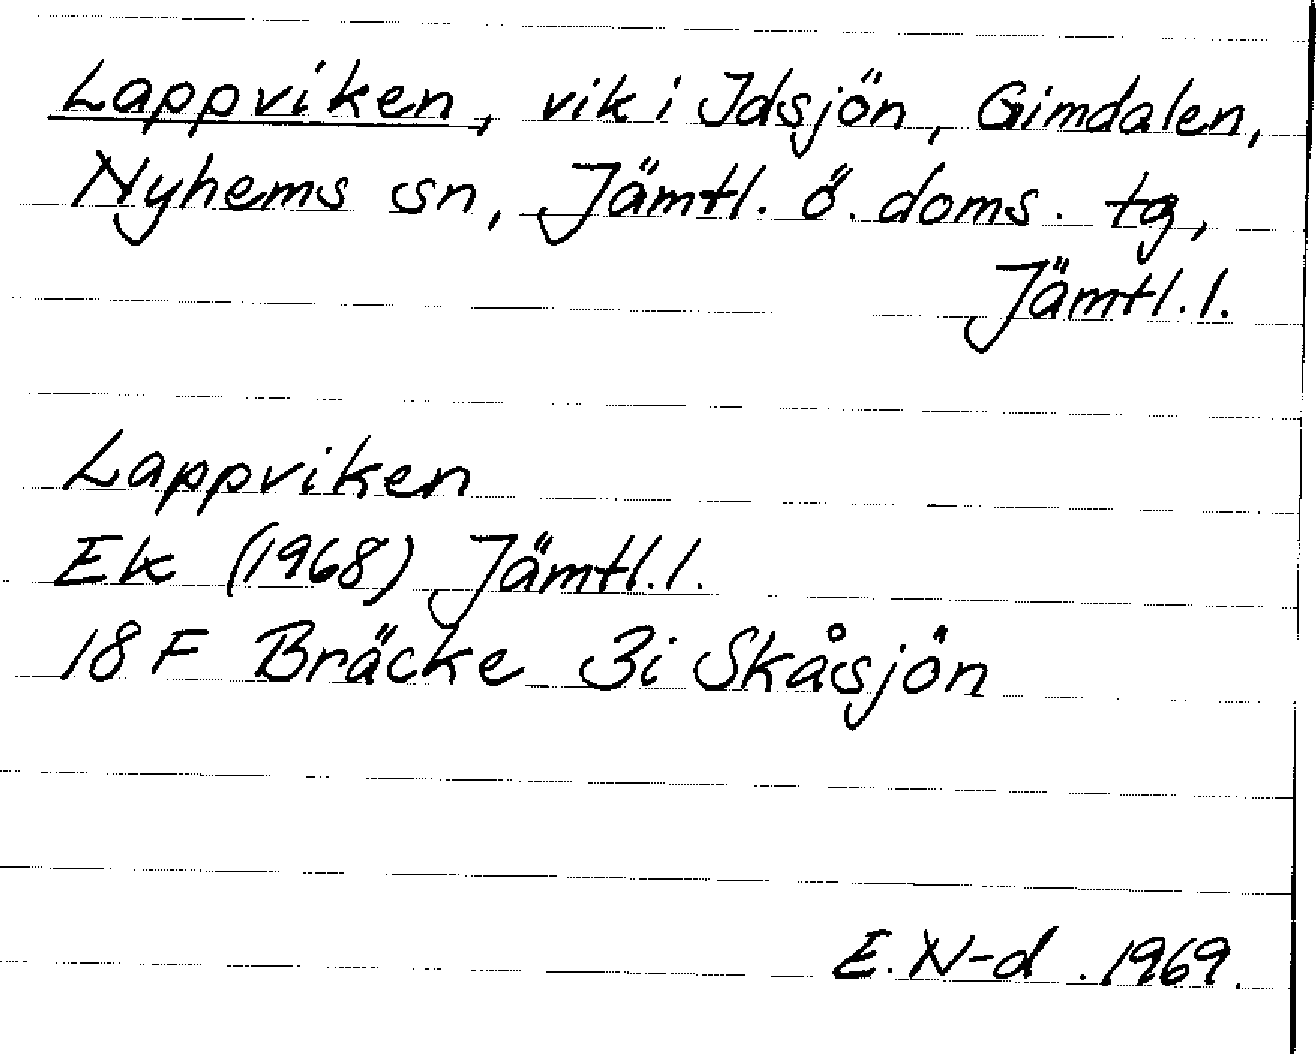 Lappviken, vik i Idsjön, Gimdalen,
Nyhems sn, Jämtl. ö. doms. tg,
Jämtl. l.
Lappviken
Ek (1968) Jämtl. l.
18 F Bräcke 3i Skåsjön
E. N-d. 1969.